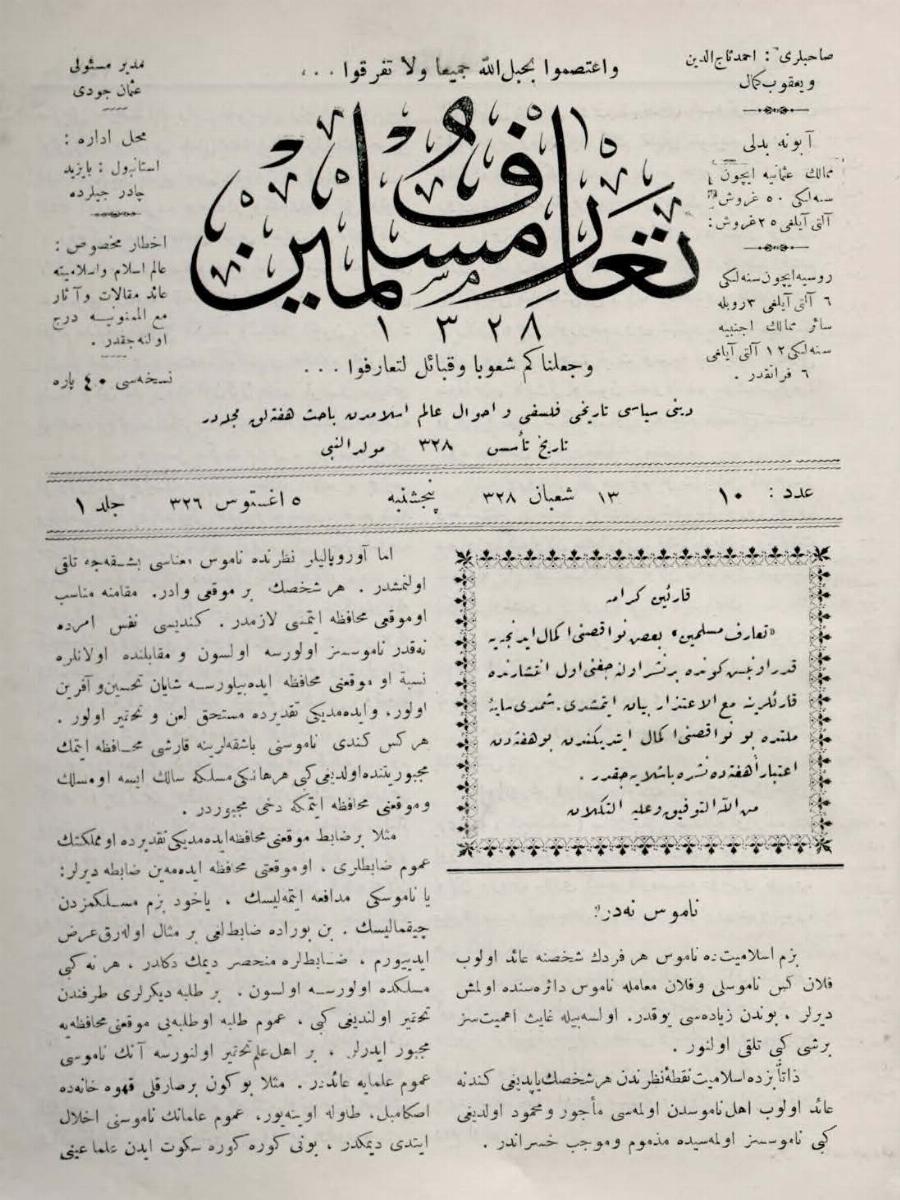 واعتصموا بحبل الله جميعا ولا تفرقوا . . .
صاحبلری : احمد تاج الدین
و یعقوب کمال
آبونه بدلی
ممالك عثمانیه ایچون
سنه‌لکی ۵۰ غروش
آلتی آیلغی ۲۵ غروش :
روسیه ایچون سنه‌لکی
۶ آلتی آیلغی ۳ روبله
سائر ممالك اجنبیه
سنه‌لکی ۱۲ آلتی آیلغی
۶ فرانقدر .
تعارف مسلمین
۱۳۲۸
وجعلناکم شعوبا وقبائل لتعارفوا . . .
مدیر مسئولی
عثمان جودی
محل اداره :
استانبول : بایزید
چادر جیلرده
اخطار مخصوص :
عالم اسلام واسلامیته
عائد مقالات وآثار
مع الممنونیه درج
اولنه‌جقدر .
نسخه‌سی ۴۰ پاره
دینی سیاسی تاریخی فلسفی و احوال عالم اسلامدن باحث هفته‌لق مجله‌در
تاریخ تأسس ۳۲۸ مولد النبی
عدد : ۱۰ ۱۳ شعبان ۳۲۸ پنجشنبه ۵ اغستوس ۳۲۶ جلد ۱
قارئین کرامه
«تعارف مسلمین» بعض نواقصنی اکمال ایدنجیه
قدر اون‌بش کونده بر نشر اولنه‌جغنی اول انتشارنده
قارئلرینه مع الاعتذار بیان ایتمشدی. شمدی سایهٔ
ملتده بو نواقصنی اکمال ایتدیکندن بو هفته‌دن
اعتباراً هفته‌ده نشره باشلایه‌جقدر .
من الله التوفیق وعلیه التکلان
ناموس نه‌در؟
بزم اسلامیت‌ده ناموس هر فردك شخصنه عائد اولوب
فلان کس ناموسلی وفلان معامله ناموس دائره‌سنده اولمش
دیرلر . بوندن زیاده‌سی یوقدر. اولسه‌بیله غایت اهمیت‌سز
برشی کبی تلقی اولنور .
ذاتاً بزده اسلامیت نقطهٔ نظرندن هر شخصك یاپدیغی کندنه
عائد اولوب اهل ناموسدن اولمه‌سی مأجور ومحمود اولدیغی
کبی ناموسسز اولمه‌سیده مذموم وموجب خسراندر .
اما آوروپالیلر نظرنده ناموس معناسی بشقه‌جه تلقی
اولنمشدر . هر شخصك بر موقعی واردر. مقامنه مناسب
او موقعی محافظه ایتمنی لازمدر. کندیسی نفس امرده
نه‌قدر ناموسسز اولورسه اولسون و مقابلنده اولانلره
نسبة او موقعنی محافظه ایده‌بیلورسه شایان تحسین و آفرین
اولور، و ایده‌مدیکی تقدیرده مستحق لعن و تحقیر اولور .
هر کس کندی ناموسنی باشقه‌لرینه قارشی محافظه ایتمك
مجبوریتنده اولدیغی کبی هر هانکی مسلکه سالك ایسه او مسلك
وموقعنی محافظه ایتمکه دخی مجبوردر .
مثلا بر ضابط موقعنی محافظه ایده‌مدیکی تقدیرده او مملکتك
عموم ضابطلری ، او موقعنی محافظه ایده‌مه‌ین ضابطه دیرلر:
یا ناموسکی مدافعه ایتمه‌لیسك ، یاخود بزم مسلکمزدن
چیقمالیسك . بن بوراده ضابط‌لغی بر مثال اوله‌رق عرض
ایدییورم . ضابطلره منحصر دیمك دکلدر . هر نه کبی
مسلکده اولورسه اولسون . بر طلبه دیکرلری طرفندن
تحقیر اولندیغی کبی . عموم طلبه او طلبه‌یی موقعنی محافظه‌یه
مجبور ایدرلر . بر اهل علم تحقیر اولنورسه آنك ناموسی
عموم علمایه عائددر . مثلا بو کون بر صارقلی قهوه خانه‌ده
اصکامبل، طاوله اوینه‌یور، عموم علمانك ناموسنی اخلال
ایتدی دیمکدر ، بونی کوره کوره سکوت ایدن علما عینی